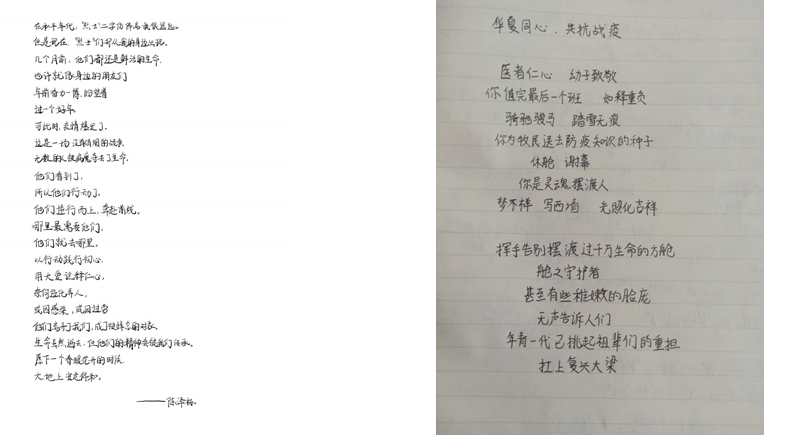 在和平年代，"烈士"二字仿佛离我很遥远。
但是现在，"烈士"们却从我的身边出现。
几个月前，他们都还是鲜活的生命，
也许就像身边的朋友们
年前奋力一搏，盼望着
过一个好年。
可此时，疫情爆发了。
这是一场没有硝烟的战争
无数的人被病魔夺去了生命。
他们看到了，
所以他们行动了。
他们逆行而上，奔赴前线。
哪里最需要他们，
他们就去哪里。
以行动践行初心，
用大爱诠释仁心。
奈何造化弄人，
或因感染，或因过劳
他们离开了我们，成了使命的代表。
生命虽然逝去，但他们的精神会被我们传承。
愿下一个春暖花开的时候，
大地上皆是祥和。
华夏同心，共抗战疫
医者仁心 幼子致敬
你值完最后一个班 如释重负
骑驰骏马 踏雪无痕
你为牧民送去防疫知识的种子
休舱 谢幕
你是灵魂摆渡人
梦不祥 写西墙 光照化吉祥
挥手告别摆渡过千万生命的方舱
舱之守护者
甚至有些稚嫩的脸庞
无声告诉人们
年青一代已挑起祖辈们的重担
扛上复兴大梁